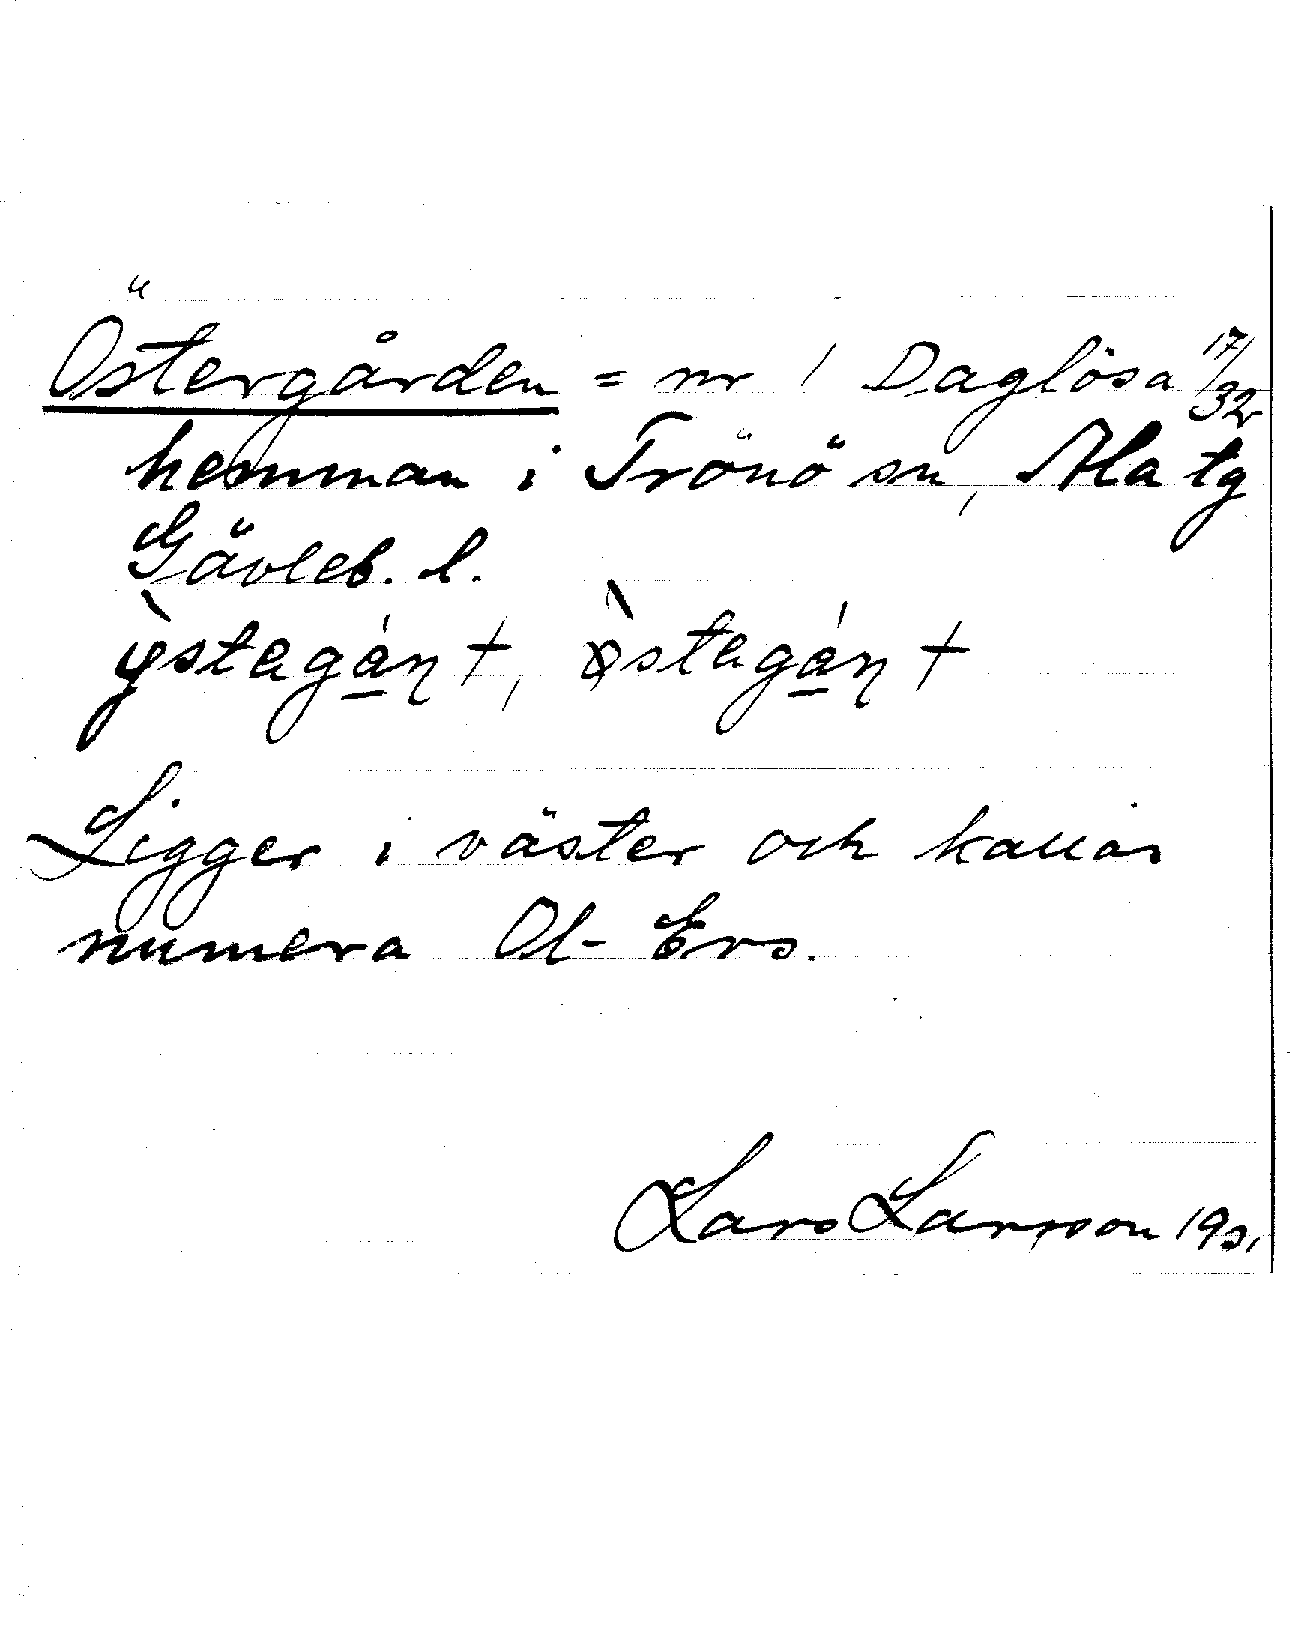 Östergården = nr 1 Daglösa 17/32
hemman i Trönö sn, Ala tg
Gävleb. l.
ỳstagán +, ø̀stagán +
Ligger i väster och kallas
numera Ol-Ers.
Lars Larsson